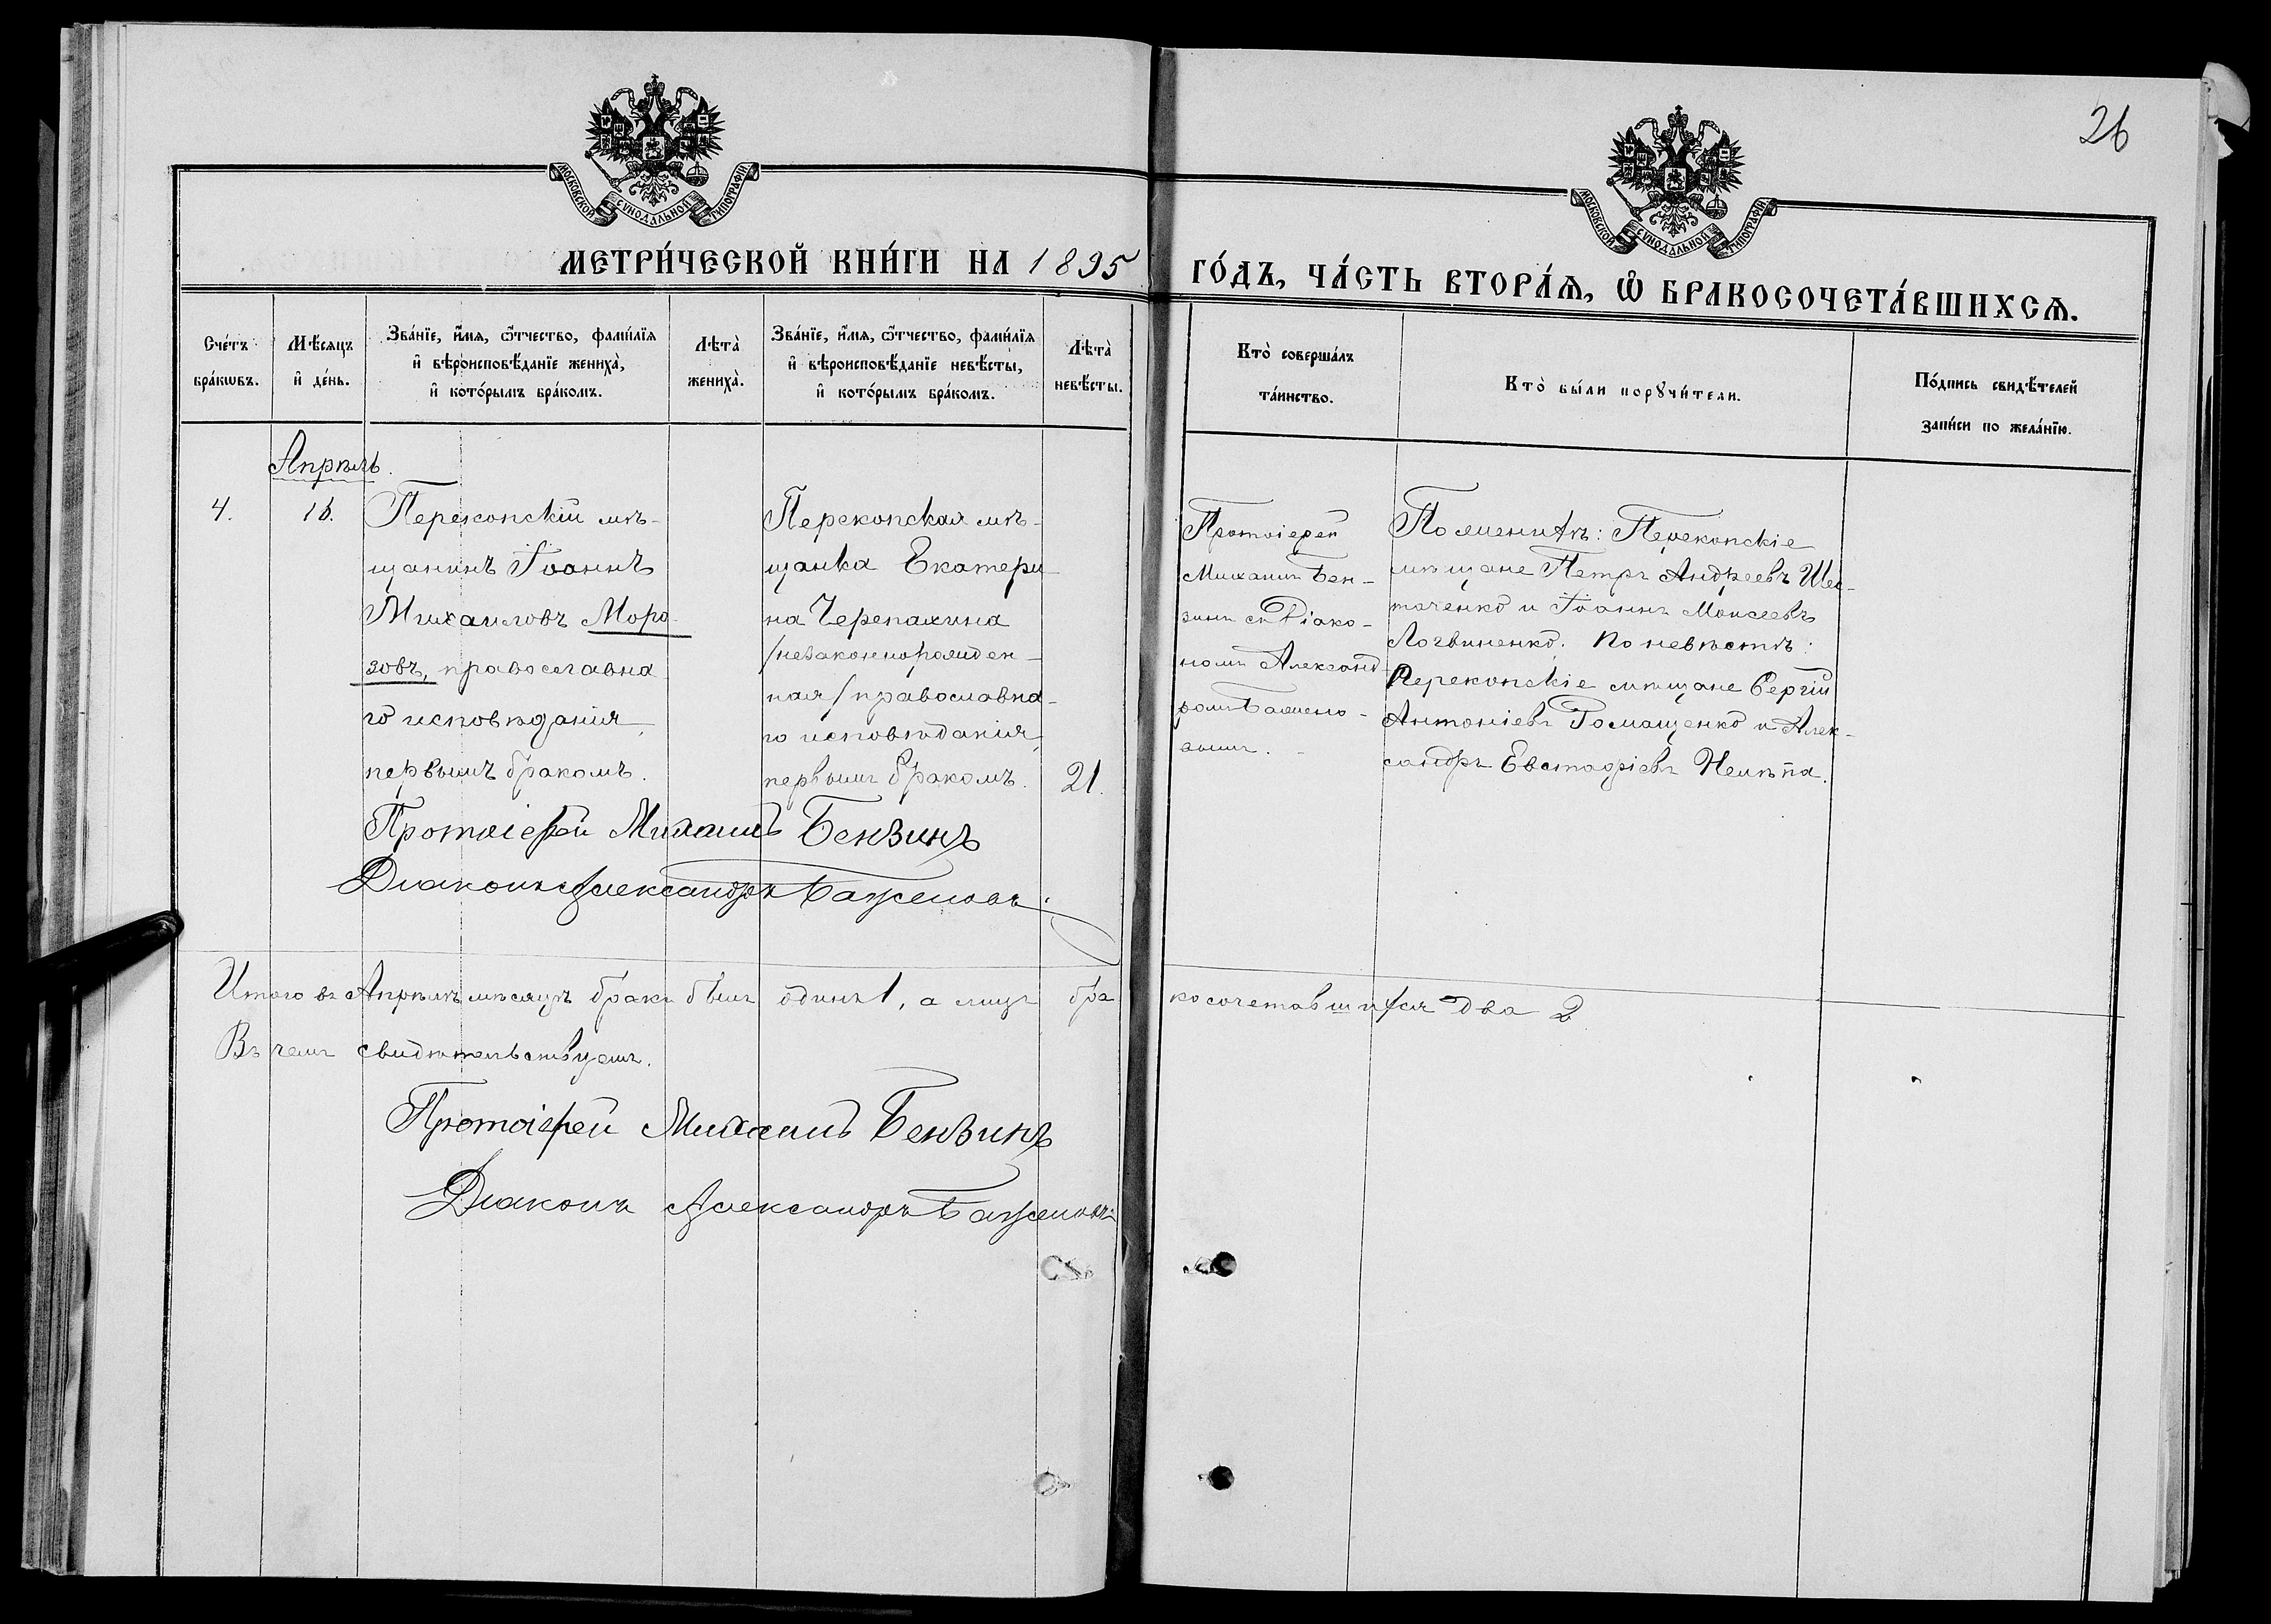 26
МОСКОВСКОЙ СѴНОДАЛЬНОЙ ТИПОГРАФІИ
МОСКОВСКОЙ СѴНОДАЛЬНОЙ ТИПОГРАФІИ
МЕТРИ́ЧЕСКОЙ КНИ́ГИ НА 1895
ГО́ДЪ, ЧА́СТЬ ВТОРА́Ѧ, Ѽ БРАКОСОЧЕТА́ВШИХСѦ.
Сче́тъ
бра́кѡвъ.
Мѣ́сяцъ
и҆ де́нь.
Зва́нїе, и҆́мѧ, ѻ҆́тчество, фами́лїѧ
и҆ вѣроисповѣ́данїе жениха̀,
и҆ кото́рымъ бра́комъ.
Лѣта̀
жениха̀.
Зва́нїе, и҆́мѧ, ѻ҆́тчество, фами́лїѧ
и҆ вѣроисповѣ́данїе невѣ́сты,
и҆ кото́рымъ бра́комъ.
Лѣта̀
невѣ́сты.
Кто̀ соверша́лъ
та́инство.
Кто̀ бы́ли порꙋчи́тели.
По́дпись свидѣ́телей
за́писи по жела́нїю.
Апрѣль.
4.
16.
Перекопскій мѣ-
щанинъ Іоаннъ
Михаиловъ Моро-
зовъ, православна
го исповѣданія,
первымъ бракомъ.
Перекопская мѣ-
щанка Екатери-
на Черепахина
/незаконнорожден-
ная/ православна-
го исповѣданія,
первымъ бракомъ.
21.
Протоіерей
Михаилъ Бен-
зинъ съ Діако-
номъ Александ-
ромъ Бажено-
вымъ.
По женихѣ: Перекопскіе
мѣщане Петръ Андреевъ Шев-
ченко и Іоаннъ Моисеевъ
Логвиненко. По невѣстѣ:
Перекопскіе мѣщане Сергій
Антоніевъ Гомащенко и Алек-
сандръ Евстафіевъ
Протоіерей Михаилъ Бензинъ
Діаконъ Александръ Баженовъ.
Итого въ Апрѣлѣ мѣсяцѣ бракъ былъ одинъ 1, а лицъ бра
косочетавшихся два 2
Въ чемъ свидѣтельствуемъ.
Протоіерей Михаилъ Бензинъ
Діаконъ Александръ Баженовъ